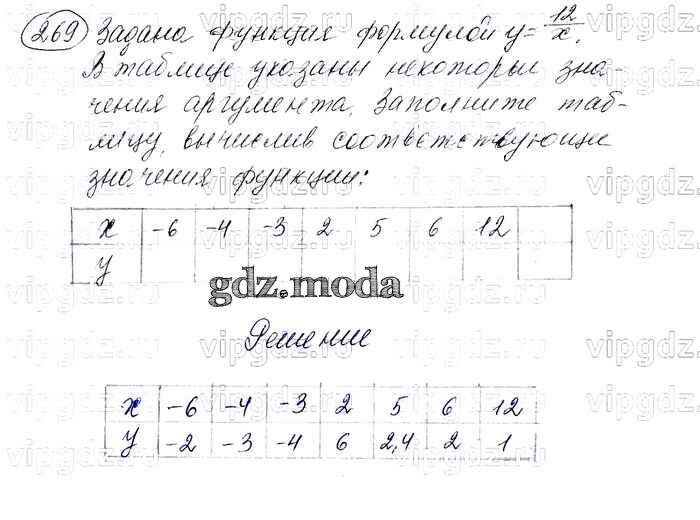 269 Задана функция формулой y = 12/x.
В таблице указаны некоторые зна-
чения аргумента. Заполните таб-
лицу, вычислив соответствующие
значения функции:
x -6 -4 -3 2 5 6 12
y
gdz.moda
Решение
x -6 -4 -3 2 5 6 12
y -2 -3 -4 6 2,4 2 1
vipgdz.ru